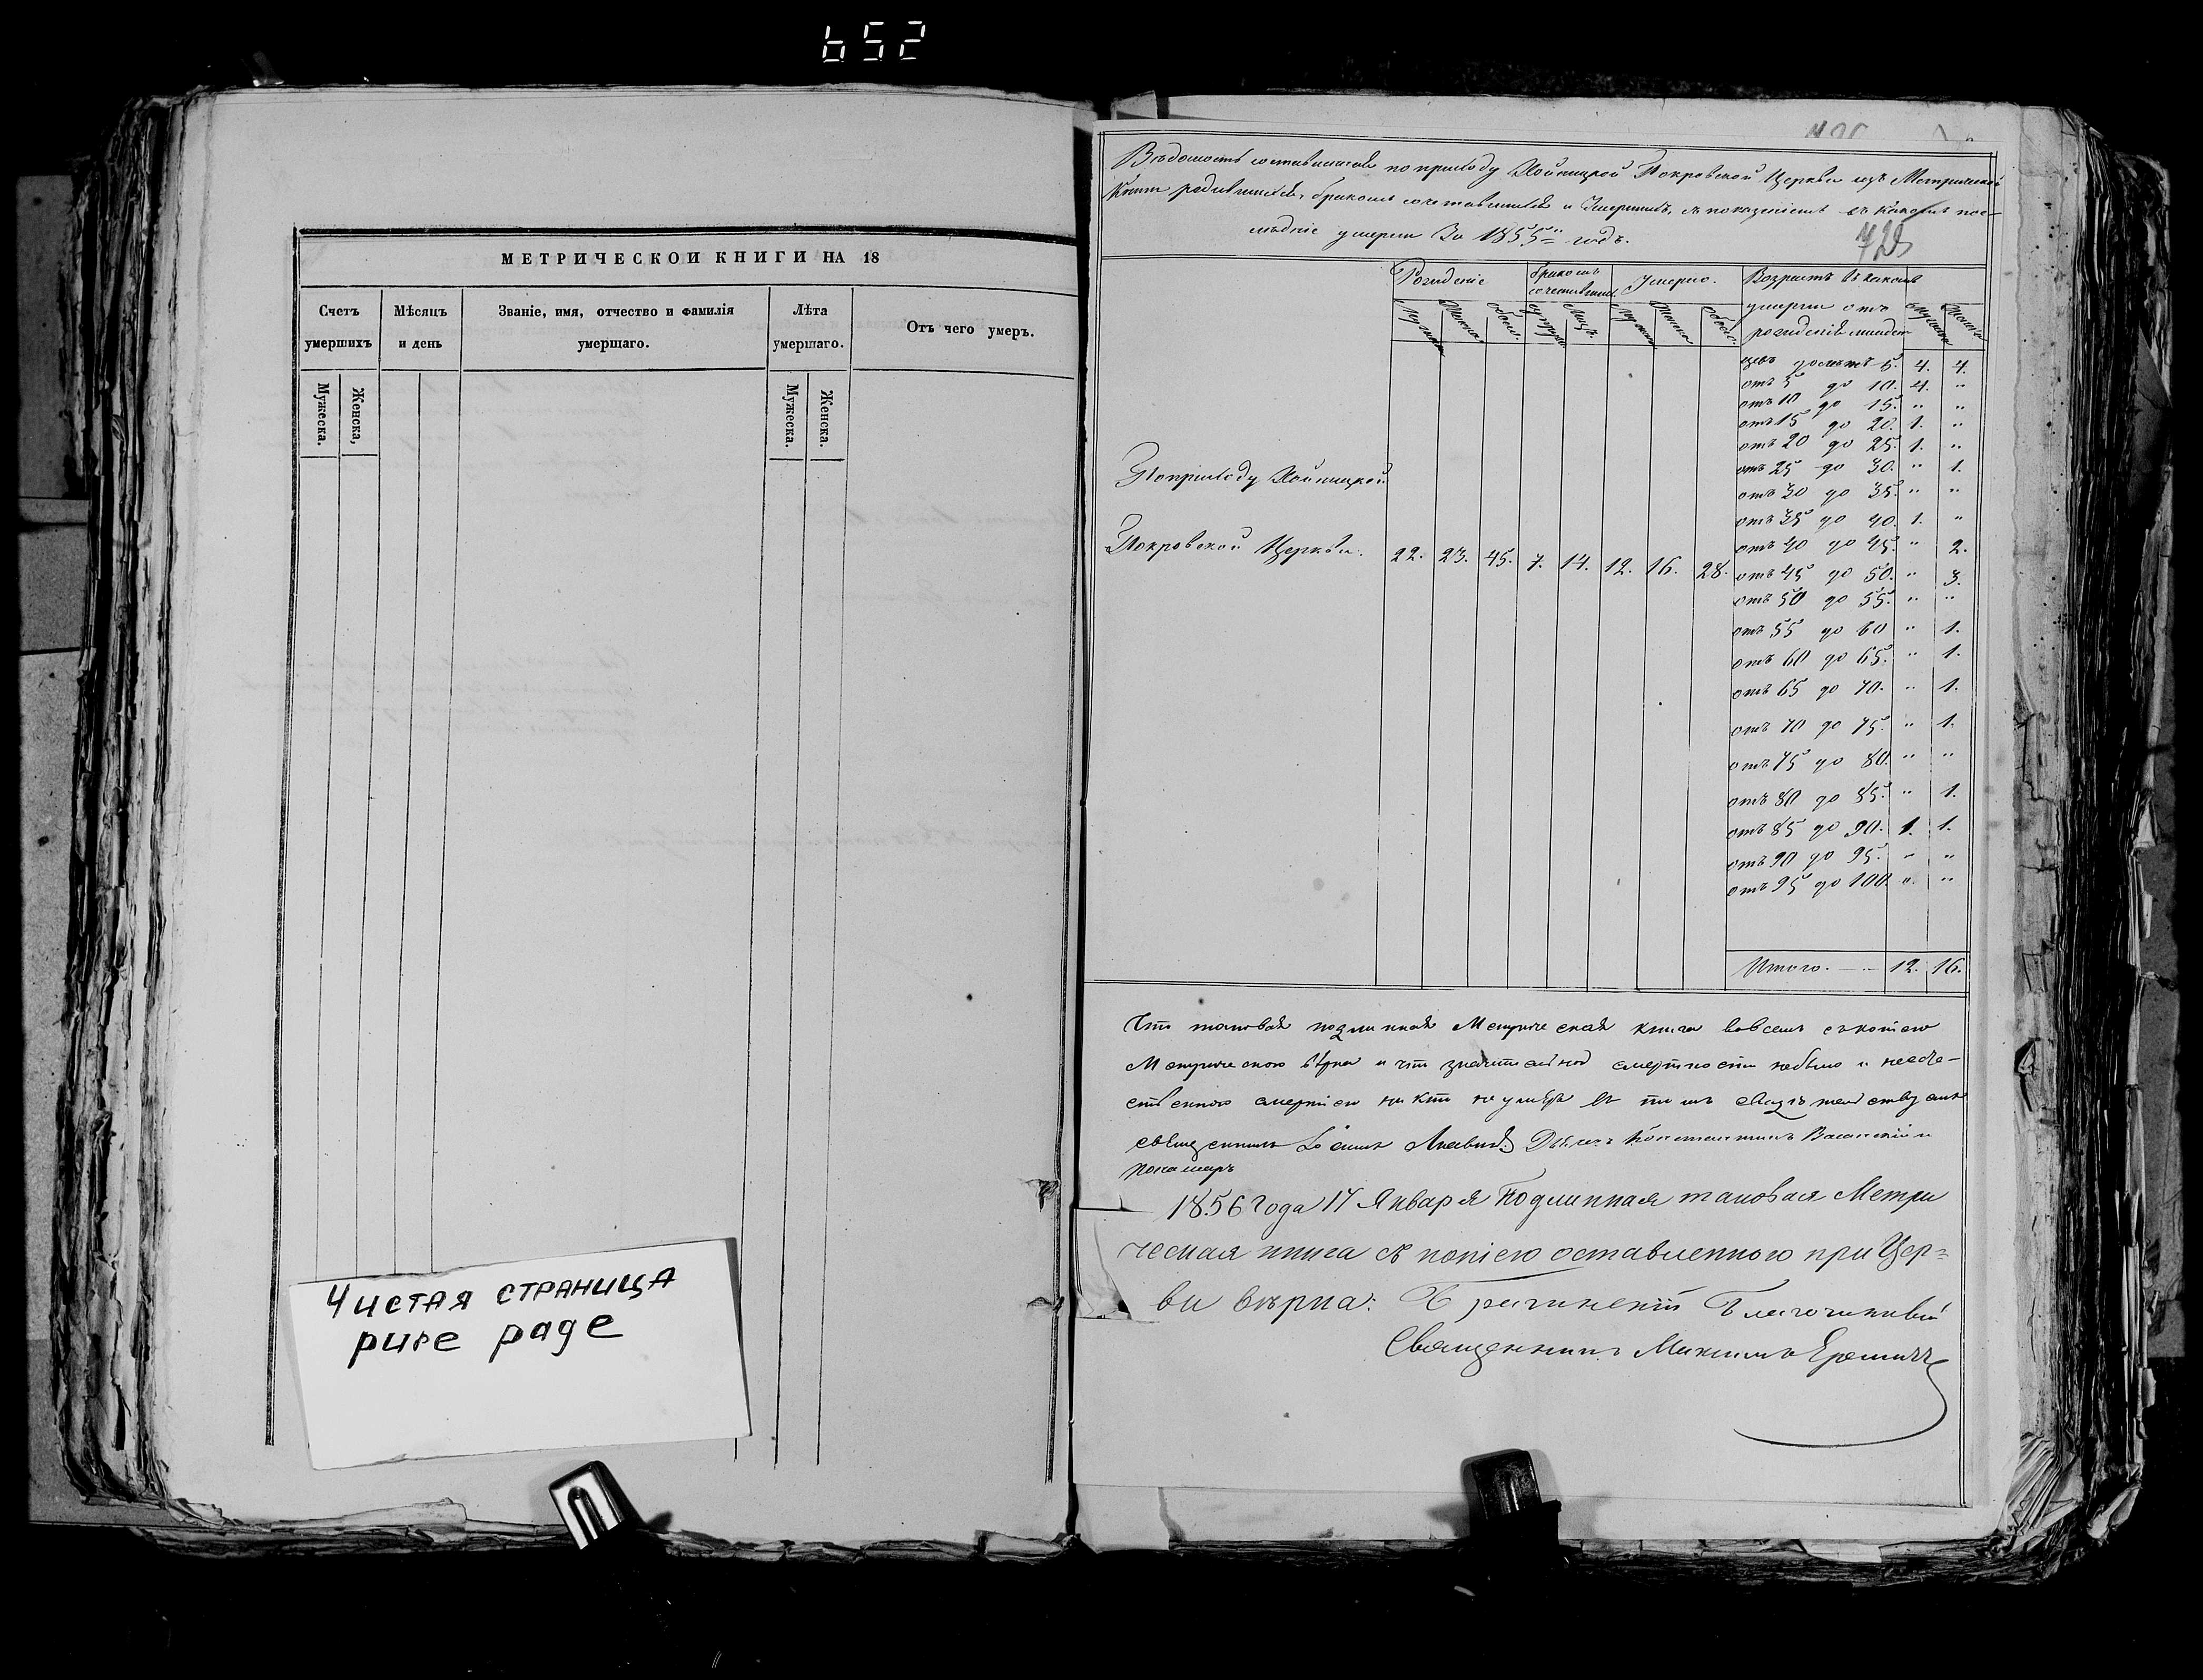 652
МЕТРИЧЕСКОЙ КНИГИ НА 18
Счетъ умершихъ
Мѣсяцъ и день
Званіе, имя, отчество и фамилія умершаго.
Лѣта умершаго.
Отъ чего умеръ.
Мужеска.
Женска,
Мужеска.
Женска.
Чистая страница
pure page
Вѣдомость составленная по приходу Хойницкой Покровской Церкви изъ Метрической
Книги родившихся, бракомъ сочетавшихся и Умершихъ, съ показаніемъ въ какомъ пос-
лѣдніе умерли За 1855й годъ.
728
Рожденіе
бракомъ сочетавших.
Умерло.
Возрастъ въ какомъ
умерли отъ
рожденія младен
цевъ до лѣтъ 5. 4. 4.
отъ 5 до 10. 4. "
отъ 10 до 15. " "
отъ 15 до 20. 1. "
отъ 20 до 25. 1. "
отъ 25 до 30. " 1.
отъ 30 до 35. " "
отъ 35 до 40. 1. "
отъ 40 до 45. " 2.
отъ 45 до 50. " 3.
отъ 50 до 55. " "
отъ 55 до 60 " 1.
отъ 60 до 65. " 1.
отъ 65 до 70. " 1.
отъ 70 до 75. " 1.
отъ 75 до 80. " "
отъ 80 до 85. " 1.
отъ 85 до 90. 1. 1.
отъ 90 до 95. " "
отъ 95 до 100. " "
По приходу Хойницкой
Покровской Церкви. 22. 23. 45. 7. 14. 12. 16. 28.
Итого. 12. 16.
Что таковая подлинная Метрическая книга вовсемъ съ копіею
Метрическою вѣрна и что значительной смертности небыло и неесте-
ственною смертію никто не умеръ въ томъ свидѣтельствуемъ
священникъ Іоаннъ Дьячекъ Константинъ
Пономарь
1856 года 17 Января Подлинная таковая Метри
ческая книга съ копіею оставленною при Цер=
кви вѣрна: Брагинскій Благочинный
Священникъ Максимъ Еремичъ